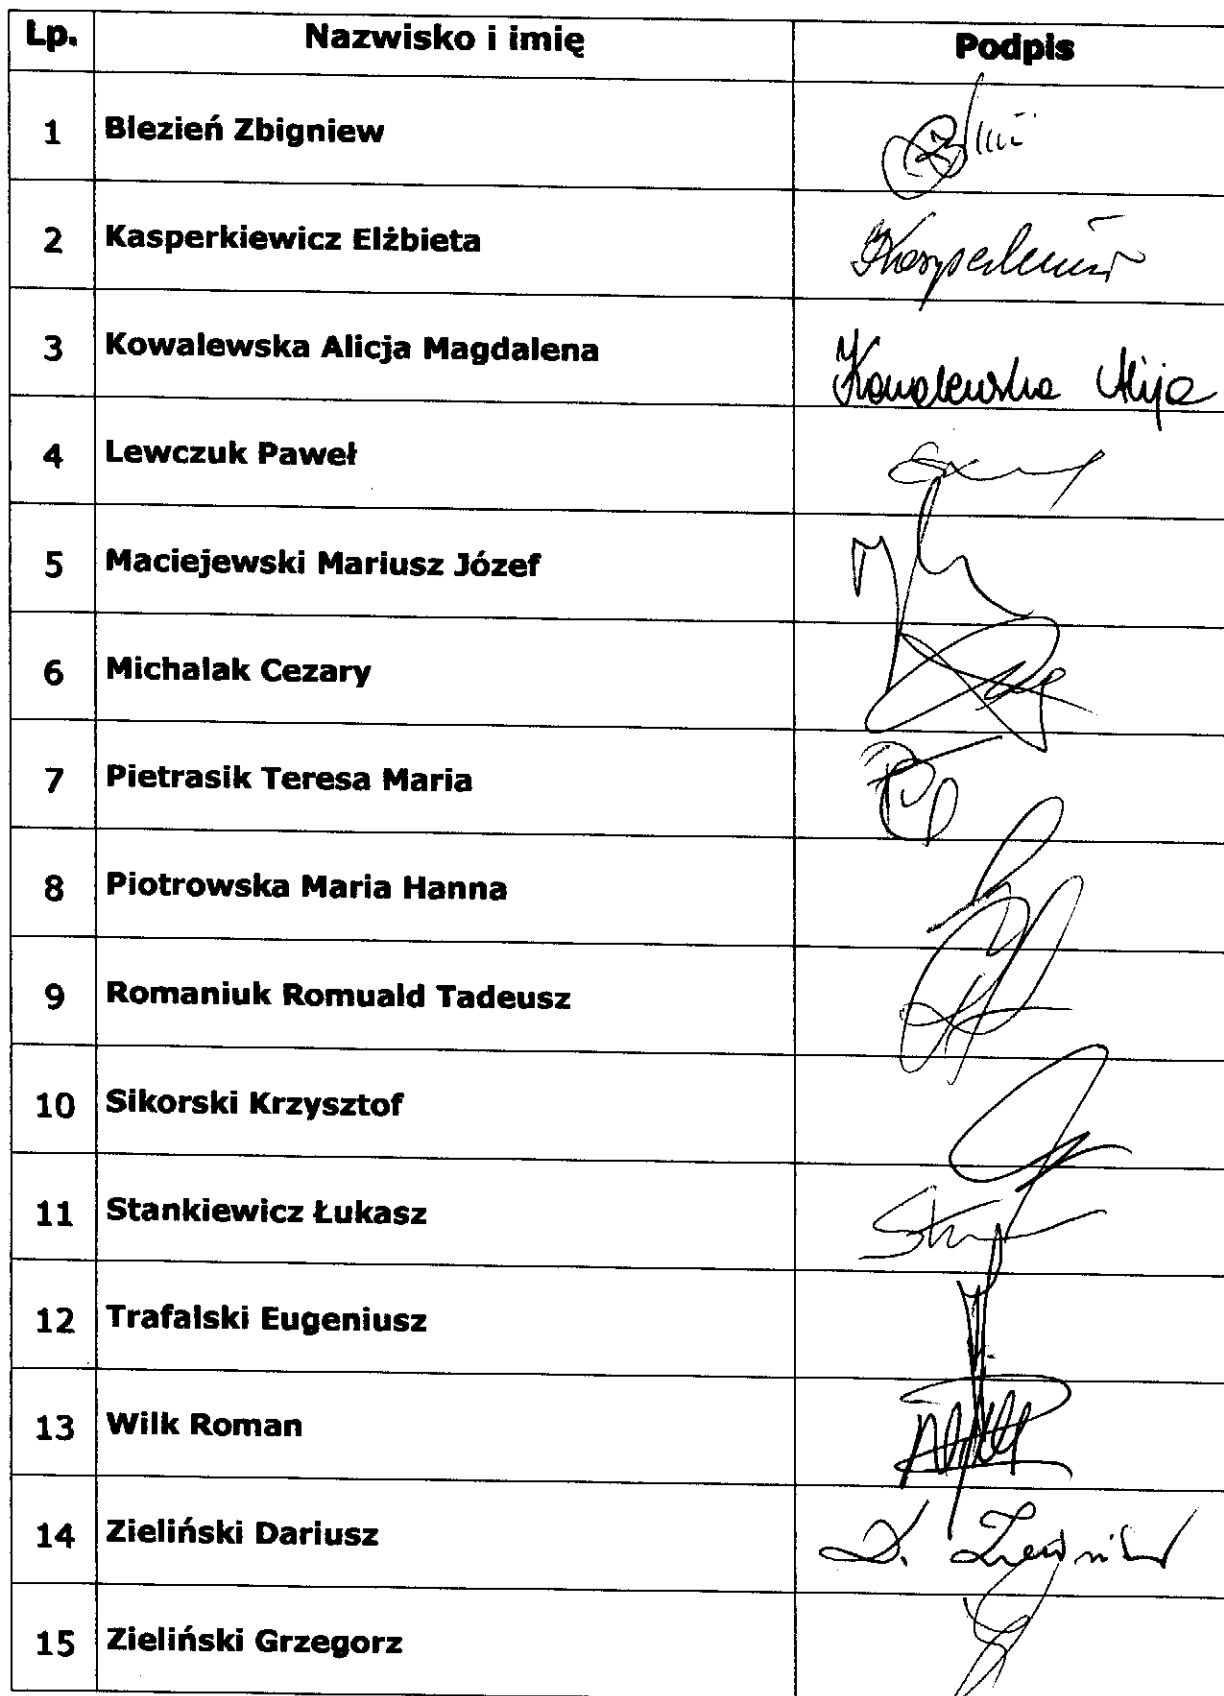 Lp. Nazwisko i imię Podpis
1 Blezień Zbigniew
2 Kasperkiewicz Elżbieta
3 Kowalewska Alicja Magdalena Kowalewska Alicja
4 Lewczuk Paweł
5 Maciejewski Mariusz Józef
6 Michalak Cezary
7 Pietrasik Teresa Maria
8 Piotrowska Maria Hanna
9 Romaniuk Romuald Tadeusz
10 Sikorski Krzysztof
11 Stankiewicz Łukasz
12 Trafalski Eugeniusz
13 Wilk Roman
14 Zieliński Dariusz D. Zieliński
15 Zieliński Grzegorz